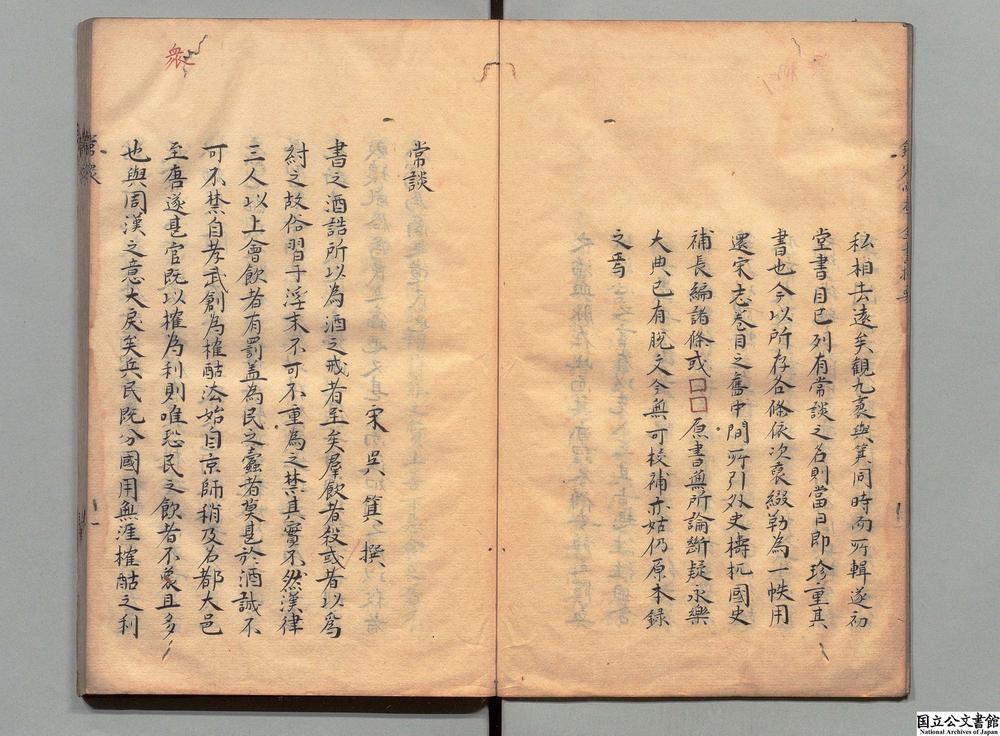 私相去遠矣觀九袠與箕同時而所輯遂初
堂書目已列有常談之名則當日即珍重其
書也今以所存各條依次裒綴勒為一帙用
還宋志卷目之舊中間所引外史檮杌國史
補長編諸條或□□原書無所論斷疑永樂
大典已有脫文今無可校補亦姑仍原本錄
之焉
常談
宋 吳箕 撰
書之酒誥所以為酒之戒者至矣羣飲者殺或者以為
紂之故俗習于浮末不可不重為之禁其實不然漢律
三人以上會飲者有罰盖為民之蠹者莫甚於酒誠不
可不禁自孝武創為榷酤法始自京師稍及名都大邑
至唐遂甚官既以榷為利則唯恐民之飲者不衆且多
也與周漢之意大戾矣兵民既分國用無涯榷酤之利
衆
常談
国立公文書館
National Archives of Japan